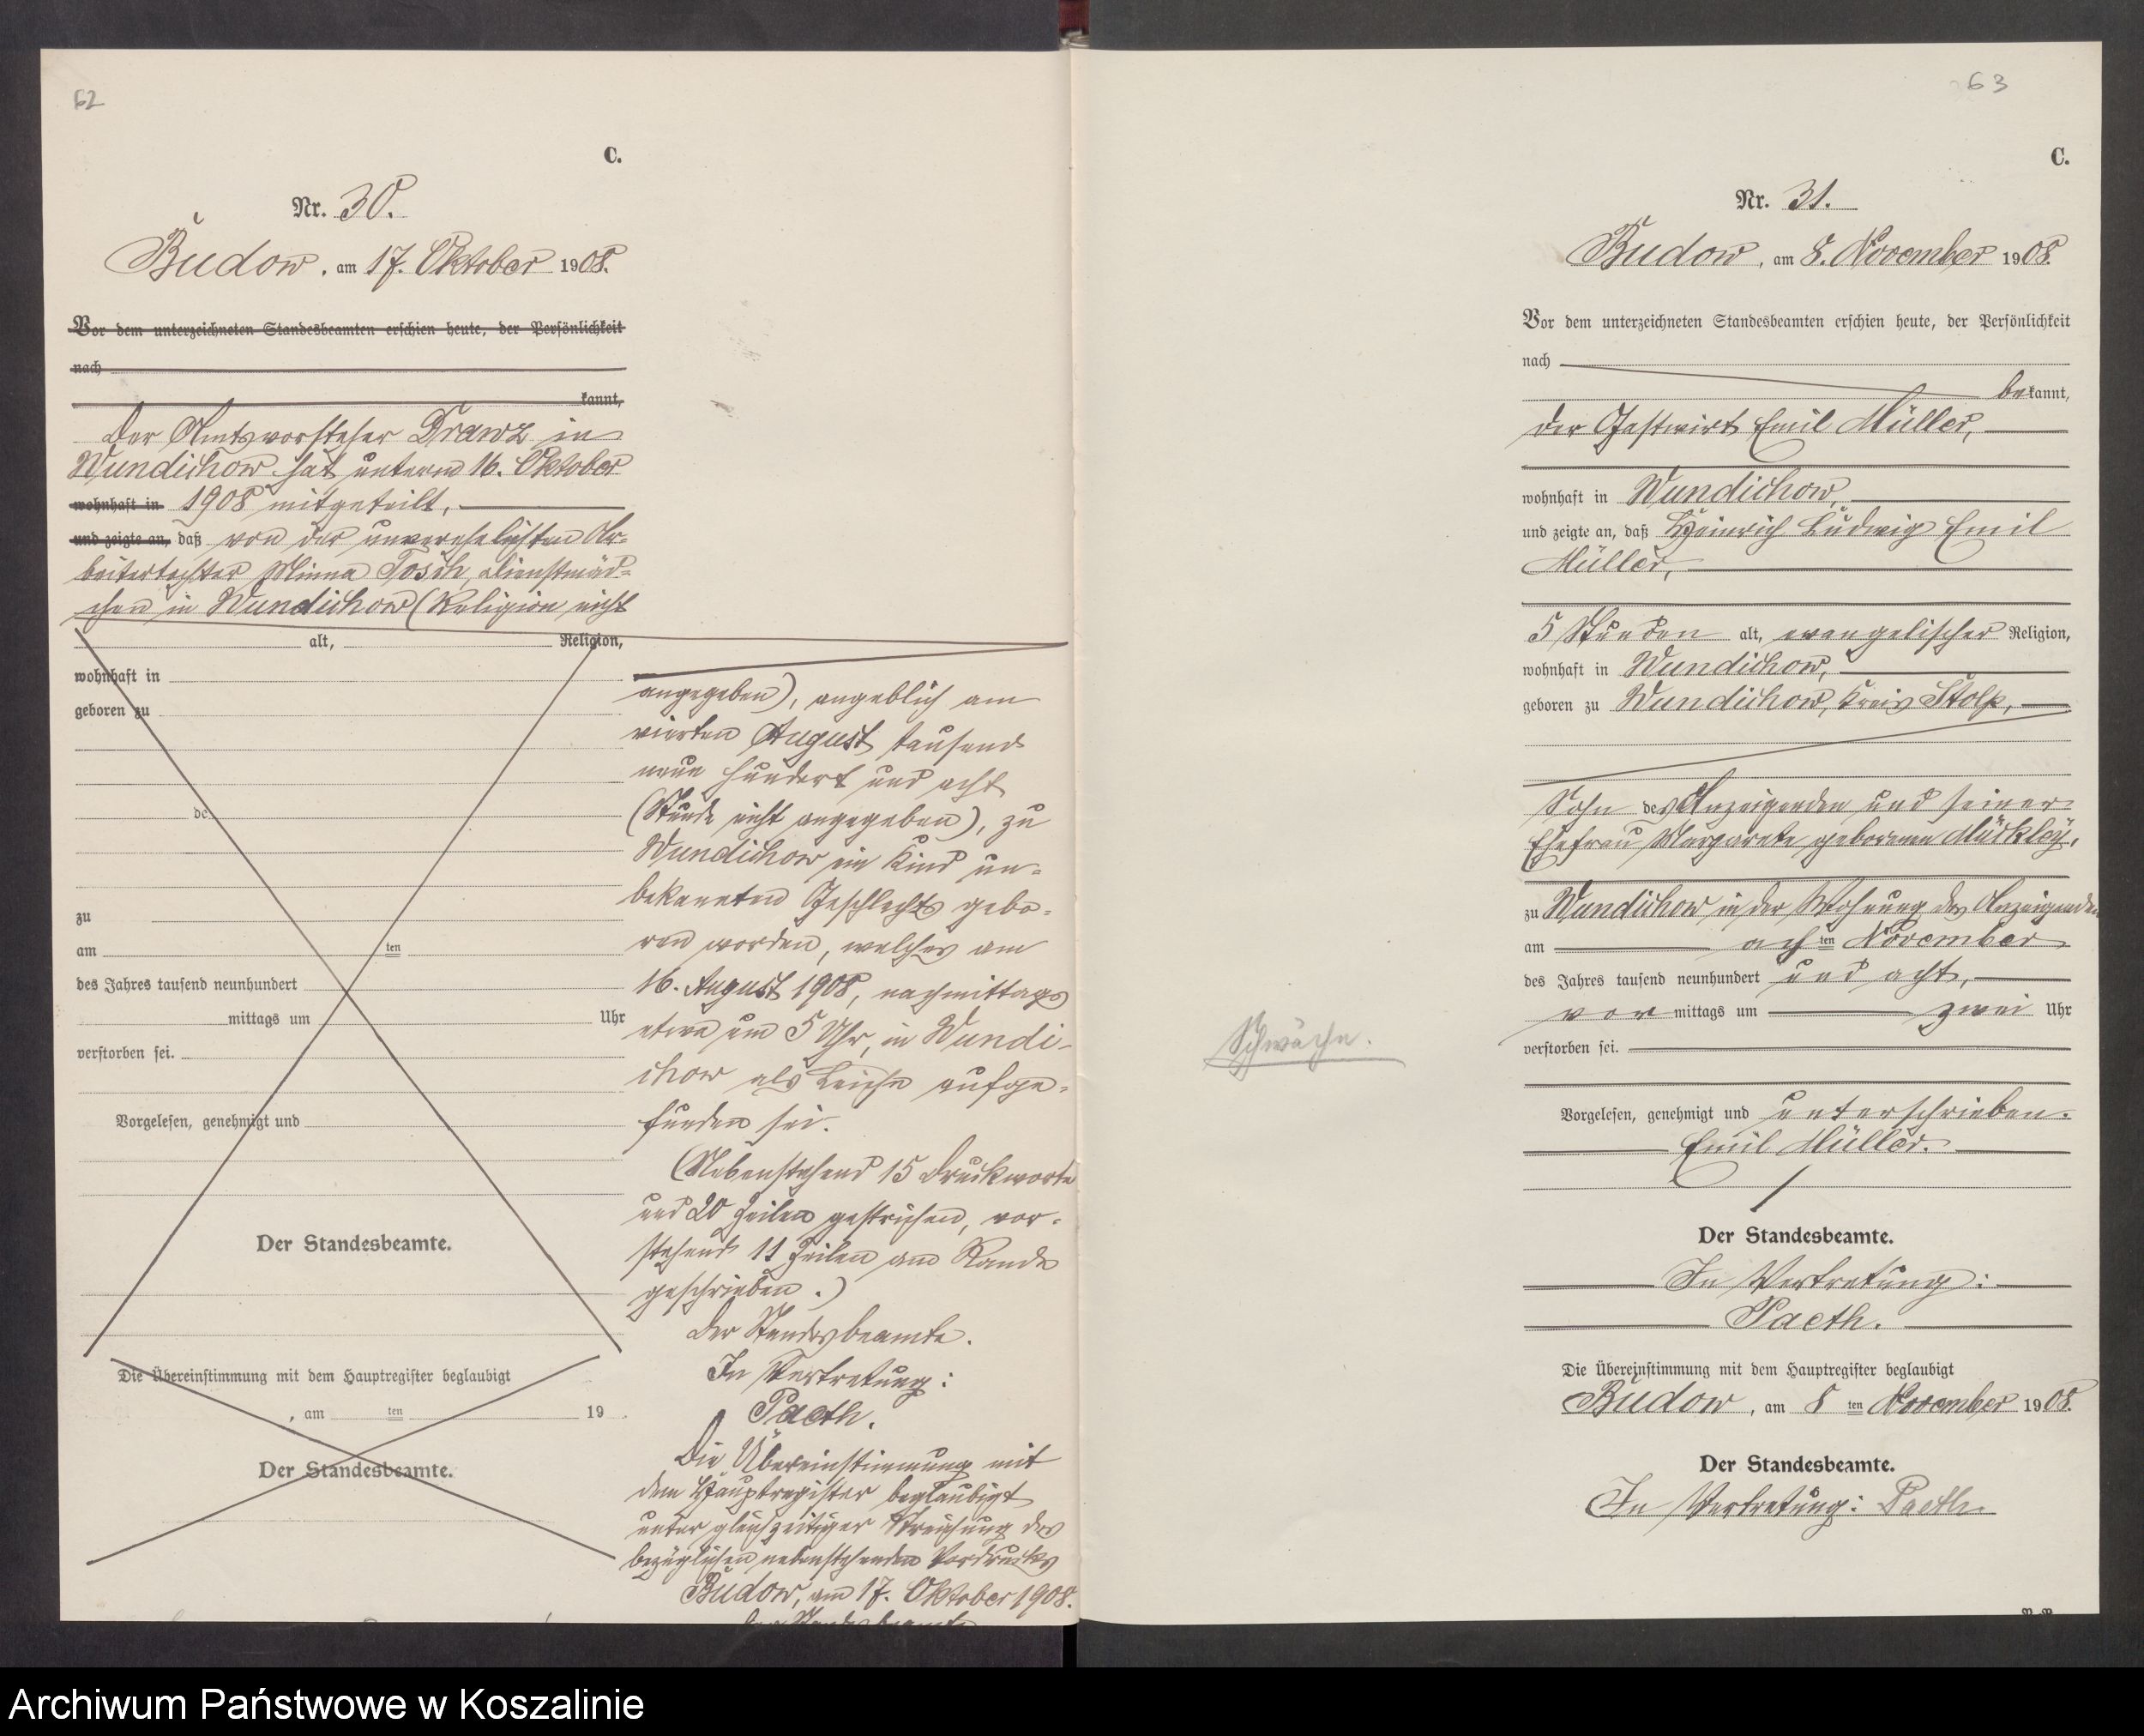 62
C.
Nr. 30.
Budow, am 17. Oktober 1908.
Vor dem unterzeichneten Standesbeamten erschien heute, der Persönlichkeit
nach
kannt,
Der Amtsvorsteher Drawz in
Wundichow hat unterm 16. Oktober
wohnhaft in 1908 mitgeteilt,
und zeigte an, daß von der unverehelichten Ar-
beitertochter Minna Tosch, Dienstmäd-
chen in Wundichow (Religion nicht
alt, Religion,
wohnhaft in
geboren zu
de
zu
am ten
des Jahres tausend neunhundert
mittags um Uhr
verstorben sei.
Vorgelesen, genehmigt und
Der Standesbeamte.
Die Übereinstimmung mit dem Hauptregister beglaubigt
, am ten 19
Der Standesbeamte.
angegeben), angeblich am
vierten August tausend
neun hundert und acht
(Stunde nicht angegeben), zu
Wundichow ein Kind un-
bekannten Geschlechts gebo-
ren worden, welches am
16. August 1908, nachmittags
etwa um 5 Uhr, in Wundi-
chow als Leiche aufge-
funden sei.
(Nebenstehend 15 Druckworte
und 20 Zeilen gestrichen, vor-
stehend 11 Zeilen am Rande
geschrieben.)
Der Standesbeamte.
In Vertretung:
Paeth.
Die Übereinstimmung mit
dem Hauptregister beglaubigt
unter gleichzeitiger Streichung des
bezüglichen nebenstehenden Vordrucks
Budow, am 17. Oktober 1908.
Der Standesbeamte
63
C.
Nr. 31.
Budow, am 8. November 1908.
Vor dem unterzeichneten Standesbeamten erschien heute, der Persönlichkeit
nach
bekannt,
der Gastwirt Emil Müller,
wohnhaft in Wundichow,
und zeigte an, daß Heinrich Ludwig Emil
Müller,
5 Stunden alt, evangelischer Religion,
wohnhaft in Wundichow,
geboren zu Wundichow, Kreis Stolp,
Sohn des Anzeigenden und seiner
Ehefrau Margarete geborenen
zu Wundichow in der Wohnung des Anzeigenden
am achten November
des Jahres tausend neunhundert und acht,
vor mittags um zwei Uhr
verstorben sei.
Schwäche.
Vorgelesen, genehmigt und unterschrieben.
Emil Müller.
Der Standesbeamte.
In Vertretung:
Paeth.
Die Übereinstimmung mit dem Hauptregister beglaubigt
Budow, am 8 ten November 1908.
Der Standesbeamte.
In Vertretung: Paeth.
Archiwum Państwowe w Koszalinie